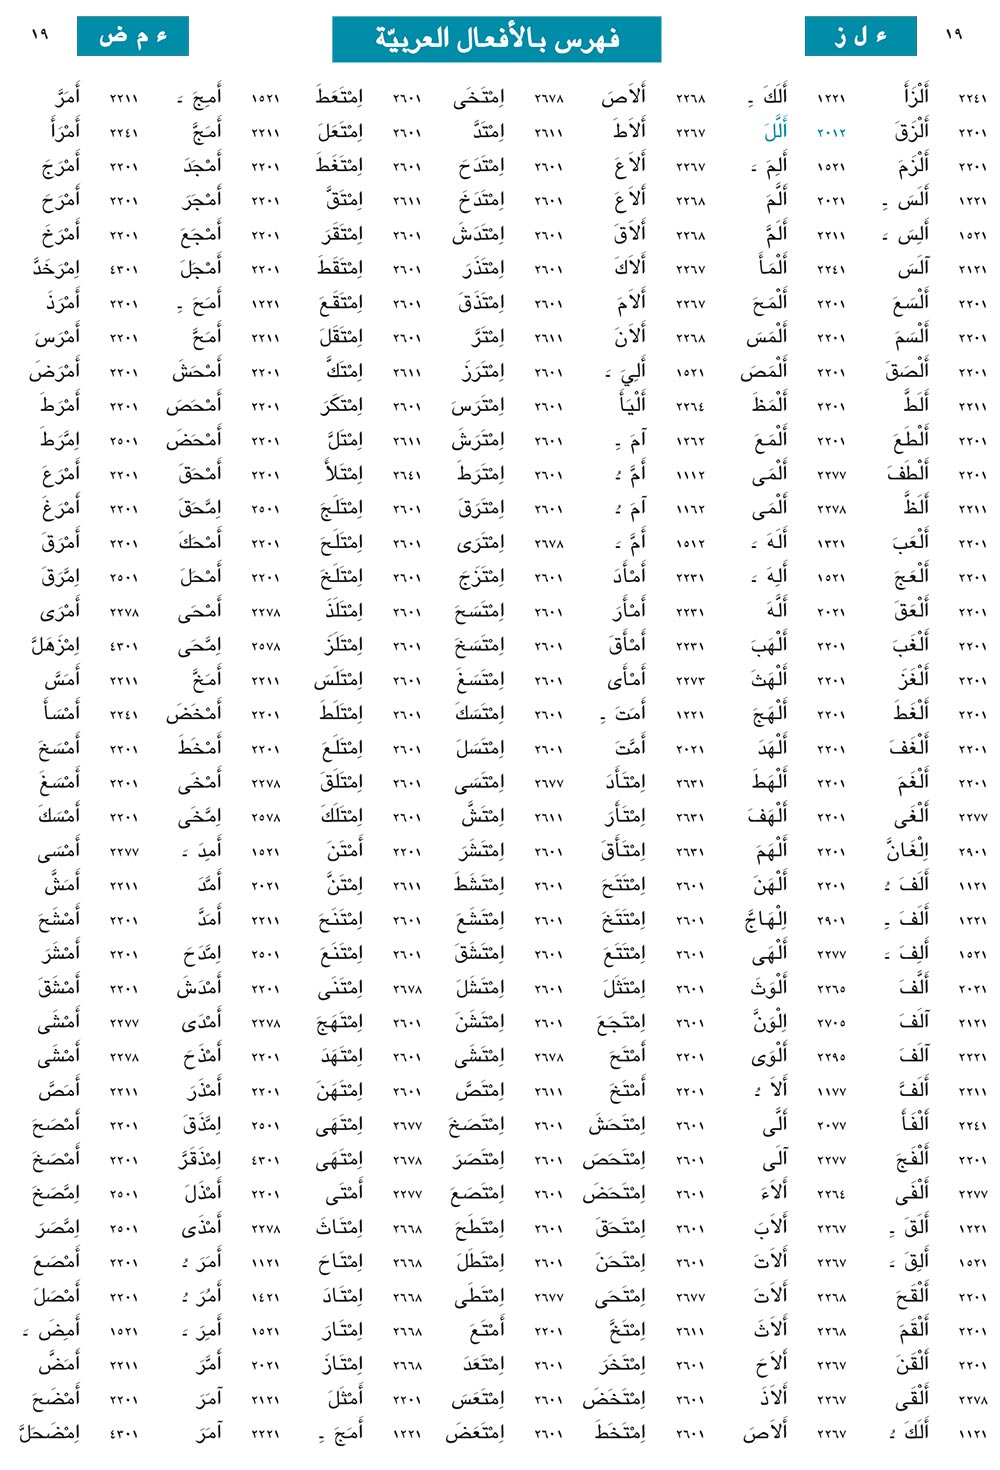 ١٩
ء ل ز
فهرس بالأفعال العربيّة
ء م ض
١٩
٢٢٤١ أَلْزَأَ
٢٢٠١ أَلْزَقَ
٢٢٠١ أَلْزَمَ
١٢٢١ أَلَسَ ـِ
١٥٢١ أَلِسَ ـَ
٢١٢١ آلَسَ
٢٢٠١ أَلْسَعَ
٢٢٠١ أَلْسَمَ
٢٢٠١ أَلْصَقَ
٢٢١١ أَلَطَّ
٢٢٠١ أَلْطَعَ
٢٢٠١ أَلْطَفَ
٢٢١١ أَلَظَّ
٢٢٠١ أَلْعَبَ
٢٢٠١ أَلْعَجَ
٢٢٠١ أَلْعَقَ
٢٢٠١ أَلْغَبَ
٢٢٠١ أَلْغَزَ
٢٢٠١ أَلْغَطَ
٢٢٠١ أَلْغَفَ
٢٢٠١ أَلْغَمَ
٢٢٧٧ أَلْغَى
٢٩٠١ اِلْغَانَّ
١١٢١ أَلَفَ ـُ
١٢٢١ أَلَفَ ـِ
١٥٢١ أَلِفَ ـَ
٢٠٢١ أَلَّفَ
٢١٢١ آلَفَ
٢٢٢١ آلَفَ
٢٢١١ أَلَفَّ
٢٢٤١ أَلْفَأَ
٢٢٠١ أَلْفَجَ
٢٢٧٧ أَلْفَى
١٢٢١ أَلَقَ ـِ
١٥٢١ أَلِقَ ـَ
٢٢٠١ أَلْقَحَ
٢٢٠١ أَلْقَمَ
٢٢٠١ أَلْقَنَ
٢٢٧٨ أَلْقَى
١١٢١ أَلَكَ ـُ
١٢٢١ أَلَكَ ـِ
٢٠١٢ أَلَّلَ
١٥٢١ أَلِمَ ـَ
٢٠٢١ أَلَّمَ
٢٢١١ أَلَمَّ
٢٢٤١ أَلْمَأَ
٢٢٠١ أَلْمَحَ
٢٢٠١ أَلْمَسَ
٢٢٠١ أَلْمَصَ
٢٢٠١ أَلْمَظَ
٢٢٠١ أَلْمَعَ
٢٢٧٧ أَلْمَى
٢٢٧٨ أَلْمَى
١٣٢١ أَلَهَ ـَ
١٥٢١ أَلِهَ ـَ
٢٠٢١ أَلَّهَ
٢٢٠١ أَلْهَبَ
٢٢٠١ أَلْهَثَ
٢٢٠١ أَلْهَجَ
٢٢٠١ أَلْهَدَ
٢٢٠١ أَلْهَطَ
٢٢٠١ أَلْهَفَ
٢٢٠١ أَلْهَمَ
٢٢٠١ أَلْهَنَ
٢٩٠١ اِلْهَاجَّ
٢٢٧٧ أَلْهَى
٢٢٦٥ أَلْوَثَ
٢٧٠٥ اِلْوَنَّ
٢٢٩٥ أَلْوَى
١١٧٧ أَلاَ ـُ
٢٠٧٧ أَلَّى
٢٢٧٧ آلَى
٢٢٦٤ أَلاَءَ
٢٢٦٧ أَلاَبَ
٢٢٦٧ أَلاَتَ
٢٢٦٨ أَلاَتَ
٢٢٦٨ أَلاَثَ
٢٢٦٧ أَلاَحَ
٢٢٦٧ أَلاَذَ
٢٢٦٧ أَلاَصَ
٢٢٦٨ أَلاَصَ
٢٢٦٧ أَلاَطَ
٢٢٦٧ أَلاَعَ
٢٢٦٨ أَلاَعَ
٢٢٦٨ أَلاَقَ
٢٢٦٧ أَلاَكَ
٢٢٦٧ أَلاَمَ
٢٢٦٨ أَلاَنَ
١٥٢١ أَلِيَ ـَ
٢٢٦٤ أَلْيَأَ
١٢٦٢ آمَ ـِ
١١١٢ أَمَّ ـُ
١١٦٢ آمَ ـُ
١٥١٢ أَمَّ ـَ
٢٢٣١ أَمْأَدَ
٢٢٣١ أَمْأَرَ
٢٢٣١ أَمْأَقَ
٢٢٧٣ أَمْأَى
١٢٢١ أَمَتَ ـِ
٢٠٢١ أَمَّتَ
٢٦٣١ اِمْتَأَدَ
٢٦٣١ اِمْتَأَرَ
٢٦٣١ اِمْتَأَقَ
٢٦٠١ اِمْتَتَحَ
٢٦٠١ اِمْتَتَخَ
٢٦٠١ اِمْتَتَعَ
٢٦٠١ اِمْتَثَلَ
٢٦٠١ اِمْتَجَعَ
٢٢٠١ أَمْتَحَ
٢٢٠١ أَمْتَخَ
٢٦٠١ اِمْتَحَشَ
٢٦٠١ اِمْتَحَصَ
٢٦٠١ اِمْتَحَضَ
٢٦٠١ اِمْتَحَقَ
٢٦٠١ اِمْتَحَنَ
٢٦٧٧ اِمْتَحَى
٢٦١١ اِمْتَخَّ
٢٦٠١ اِمْتَخَرَ
٢٦٠١ اِمْتَخَضَ
٢٦٠١ اِمْتَخَطَ
٢٦٧٨ اِمْتَخَى
٢٦١١ اِمْتَدَّ
٢٦٠١ اِمْتَدَحَ
٢٦٠١ اِمْتَدَخَ
٢٦٠١ اِمْتَدَشَ
٢٦٠١ اِمْتَذَرَ
٢٦٠١ اِمْتَذَقَ
٢٦١١ اِمْتَرَّ
٢٦٠١ اِمْتَرَزَ
٢٦٠١ اِمْتَرَسَ
٢٦٠١ اِمْتَرَشَ
٢٦٠١ اِمْتَرَطَ
٢٦٠١ اِمْتَرَقَ
٢٦٧٨ اِمْتَرَى
٢٦٠١ اِمْتَزَجَ
٢٦٠١ اِمْتَسَحَ
٢٦٠١ اِمْتَسَخَ
٢٦٠١ اِمْتَسَغَ
٢٦٠١ اِمْتَسَكَ
٢٦٠١ اِمْتَسَلَ
٢٦٧٧ اِمْتَسَى
٢٦١١ اِمْتَشَّ
٢٦٠١ اِمْتَشَرَ
٢٦٠١ اِمْتَشَطَ
٢٦٠١ اِمْتَشَعَ
٢٦٠١ اِمْتَشَقَ
٢٦٠١ اِمْتَشَلَ
٢٦٠١ اِمْتَشَنَ
٢٦٧٨ اِمْتَشَى
٢٦١١ اِمْتَصَّ
٢٦٠١ اِمْتَصَخَ
٢٦٠١ اِمْتَصَرَ
٢٦٠١ اِمْتَصَعَ
٢٦٠١ اِمْتَطَحَ
٢٦٠١ اِمْتَطَلَ
٢٦٧٧ اِمْتَطَى
٢٢٠١ أَمْتَعَ
٢٦٠١ اِمْتَعَدَ
٢٦٠١ اِمْتَعَسَ
٢٦٠١ اِمْتَعَضَ
٢٦٠١ اِمْتَعَطَ
٢٦٠١ اِمْتَعَلَ
٢٦٠١ اِمْتَغَطَ
٢٦١١ اِمْتَقَّ
٢٦٠١ اِمْتَقَرَ
٢٦٠١ اِمْتَقَطَ
٢٦٠١ اِمْتَقَعَ
٢٦٠١ اِمْتَقَلَ
٢٦١١ اِمْتَكَّ
٢٦٠١ اِمْتَكَرَ
٢٦١١ اِمْتَلَّ
٢٦٤١ اِمْتَلأَ
٢٦٠١ اِمْتَلَجَ
٢٦٠١ اِمْتَلَحَ
٢٦٠١ اِمْتَلَخَ
٢٦٠١ اِمْتَلَذَ
٢٦٠١ اِمْتَلَزَ
٢٦٠١ اِمْتَلَسَ
٢٦٠١ اِمْتَلَطَ
٢٦٠١ اِمْتَلَعَ
٢٦٠١ اِمْتَلَقَ
٢٦٠١ اِمْتَلَكَ
٢٢٠١ أَمْتَنَ
٢٦١١ اِمْتَنَّ
٢٦٠١ اِمْتَنَحَ
٢٦٠١ اِمْتَنَعَ
٢٦٧٨ اِمْتَنَى
٢٦٠١ اِمْتَهَجَ
٢٦٠١ اِمْتَهَدَ
٢٦٠١ اِمْتَهَنَ
٢٦٧٧ اِمْتَهَى
٢٦٧٨ اِمْتَهَى
٢٢٧٧ أَمْتَى
٢٦٦٨ اِمْتَاثَ
٢٦٦٨ اِمْتَاحَ
٢٦٦٨ اِمْتَادَ
٢٦٦٨ اِمْتَارَ
٢٦٦٨ اِمْتَازَ
٢٢٠١ أَمْثَلَ
١٢٢١ أَمَجَ ـِ
١٥٢١ أَمِجَ ـَ
٢٢١١ أَمَجَّ
٢٢٠١ أَمْجَدَ
٢٢٠١ أَمْجَرَ
٢٢٠١ أَمْجَعَ
٢٢٠١ أَمْجَلَ
١٢٢١ أَمَحَ ـِ
٢٢١١ أَمَحَّ
٢٢٠١ أَمْحَشَ
٢٢٠١ أَمْحَصَ
٢٢٠١ أَمْحَضَ
٢٢٠١ أَمْحَقَ
٢٥٠١ اِمَّحَقَ
٢٢٠١ أَمْحَكَ
٢٢٠١ أَمْحَلَ
٢٢٧٨ أَمْحَى
٢٥٧٨ اِمَّحَى
٢٢١١ أَمَخَّ
٢٢٠١ أَمْخَضَ
٢٢٠١ أَمْخَطَ
٢٢٧٨ أَمْخَى
٢٥٧٨ اِمَّخَى
١٥٢١ أَمِدَ ـَ
٢٠٢١ أَمَّدَ
٢٢١١ أَمَدَّ
٢٥٠١ اِمَّدَحَ
٢٢٠١ أَمْدَشَ
٢٢٧٨ أَمْدَى
٢٢٠١ أَمْذَحَ
٢٢٠١ أَمْذَرَ
٢٥٠١ اِمَّذَقَ
٤٣٠١ اِمْذَقَرَّ
٢٢٠١ أَمْذَلَ
٢٢٧٨ أَمْذَى
١١٢١ أَمَرَ ـُ
١٤٢١ أَمُرَ ـُ
١٥٢١ أَمِرَ ـَ
٢٠٢١ أَمَّرَ
٢١٢١ آمَرَ
٢٢٢١ آمَرَ
٢٢١١ أَمَرَّ
٢٢٤١ أَمْرَأَ
٢٢٠١ أَمْرَجَ
٢٢٠١ أَمْرَحَ
٢٢٠١ أَمْرَخَ
٤٣٠١ اِمْرَخَدَّ
٢٢٠١ أَمْرَذَ
٢٢٠١ أَمْرَسَ
٢٢٠١ أَمْرَضَ
٢٢٠١ أَمْرَطَ
٢٥٠١ اِمَّرَطَ
٢٢٠١ أَمْرَعَ
٢٢٠١ أَمْرَغَ
٢٢٠١ أَمْرَقَ
٢٥٠١ اِمَّرَقَ
٢٢٧٨ أَمْرَى
٤٣٠١ اِمْزَهَلَّ
٢٢١١ أَمَسَّ
٢٢٤١ أَمْسَأَ
٢٢٠١ أَمْسَخَ
٢٢٠١ أَمْسَغَ
٢٢٠١ أَمْسَكَ
٢٢٧٧ أَمْسَى
٢٢١١ أَمَشَّ
٢٢٠١ أَمْشَحَ
٢٢٠١ أَمْشَرَ
٢٢٠١ أَمْشَقَ
٢٢٧٧ أَمْشَى
٢٢٧٨ أَمْشَى
٢٢١١ أَمَصَّ
٢٢٠١ أَمْصَحَ
٢٢٠١ أَمْصَخَ
٢٥٠١ اِمَّصَخَ
٢٥٠١ اِمَّصَرَ
٢٢٠١ أَمْصَعَ
٢٢٠١ أَمْصَلَ
١٥٢١ أَمِضَ ـَ
٢٢١١ أَمَضَّ
٢٢٠١ أَمْضَحَ
٤٣٠١ اِمْضَحَلَّ